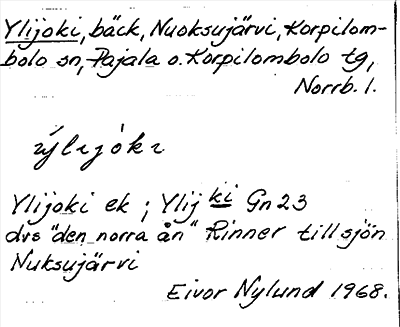 Ylijoki, bäck, Nuoksujärvi, Korpilom-
bolo sn, Pajala o. Korpilombolo tg,
Norrb. l.
Ylijoki ek ; Ylij ki Gn 23
dvs "den norra ån" Rinner till sjön
Nuksujärvi
Eivor Nylund 1968.